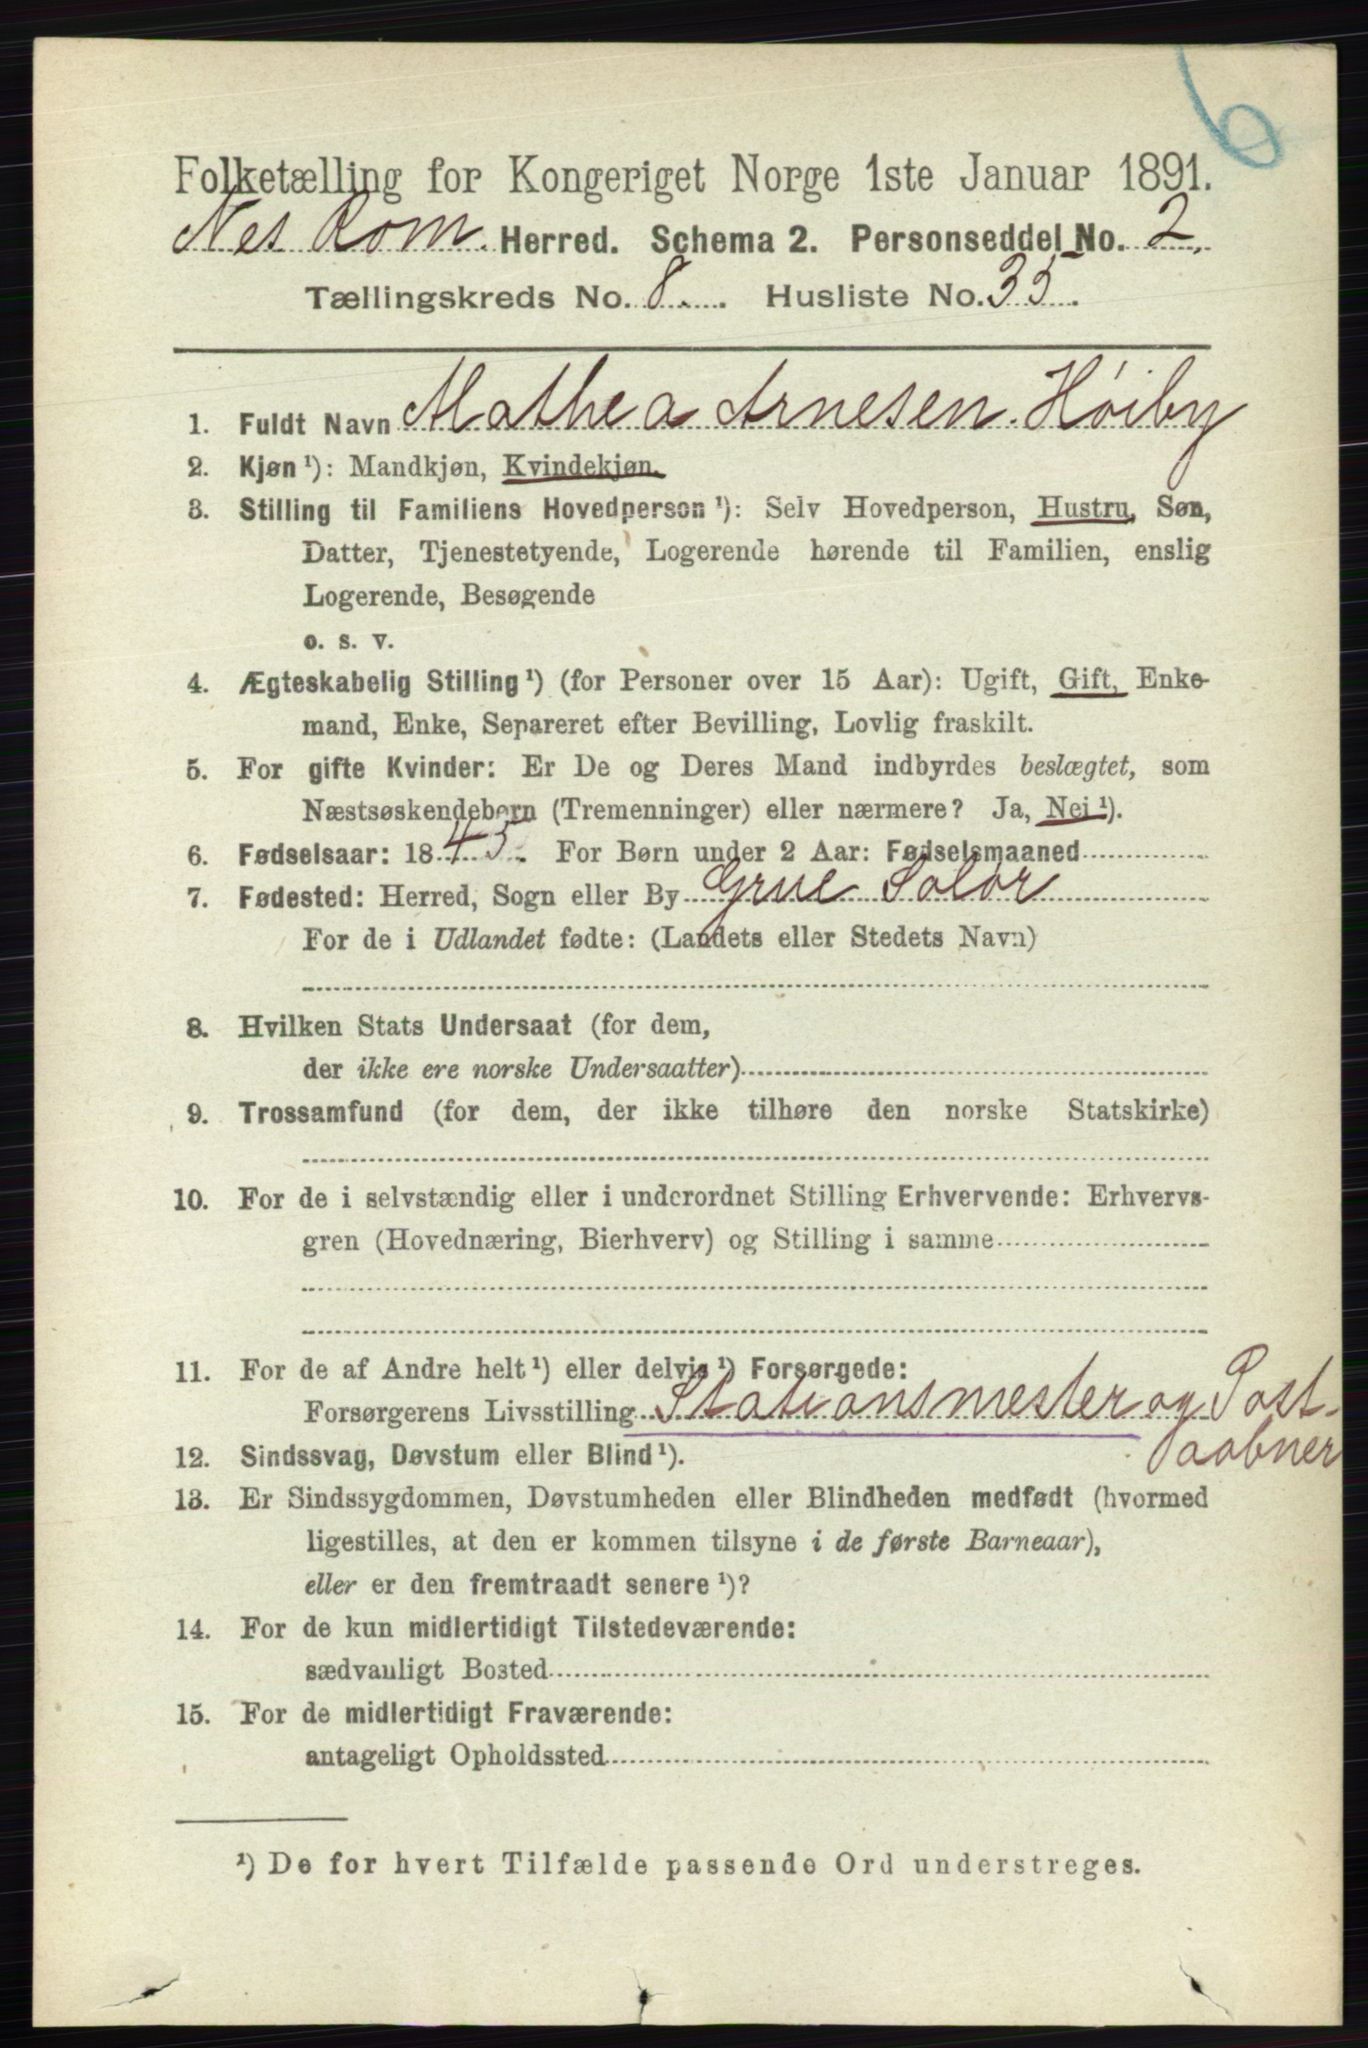 6
Folketælling for Kongeriget Norge 1ste Januar 1891.
Nes Rom. Herred. Schema 2. Personseddel No. 2.
Tællingskreds No. 8. Husliste No. 35.
1. Fuldt Navn Mathea Arnesen. Høiby
2. Kjøn ¹): Mandkjøn, Kvindekjøn.
3. Stilling til Familiens Hovedperson ¹): Selv Hovedperson, Hustru, Søn,
Datter, Tjenestetyende, Logerende hørende til Familien, enslig
Logerende, Besøgende
o. s. v.
4. Ægteskabelig Stilling ¹) (for Personer over 15 Aar): Ugift, Gift, Enke-
mand, Enke, Separeret efter Bevilling, Lovlig fraskilt.
5. For gifte Kvinder: Er De og Deres Mand indbyrdes beslægtet, som
Næstsøskendebørn (Tremenninger) eller nærmere? Ja, Nei ¹).
6. Fødselsaar: 1845. For Børn under 2 Aar: Fødselsmaaned
7. Fødested: Herred, Sogn eller By Grue Solør
For de i Udlandet fødte: (Landets eller Stedets Navn)
8. Hvilken Stats Undersaat (for dem,
der ikke ere norske Undersaatter)
9. Trossamfund (for dem, der ikke tilhøre den norske Statskirke)
10. For de i selvstændig eller i underordnet Stilling Erhvervende: Erhvervs-
gren (Hovednæring, Bierhverv) og Stilling i samme
11. For de af Andre helt ¹) eller delvis ¹) Forsørgede:
Forsørgerens Livsstilling Stationsmester og Post-
aabner
12. Sindssvag, Døvstum eller Blind ¹).
13. Er Sindssygdommen, Døvstumheden eller Blindheden medfødt (hvormed
ligestilles, at den er kommen tilsyne i de første Barneaar),
eller er den fremtraadt senere ¹)?
14. For de kun midlertidigt Tilstedeværende:
sædvanligt Bosted
15. For de midlertidigt Fraværende:
antageligt Opholdssted
¹) De for hvert Tilfælde passende Ord understreges.